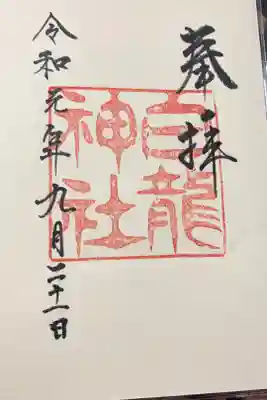 奉拝
白龍
神社
令和元年九月二十一日